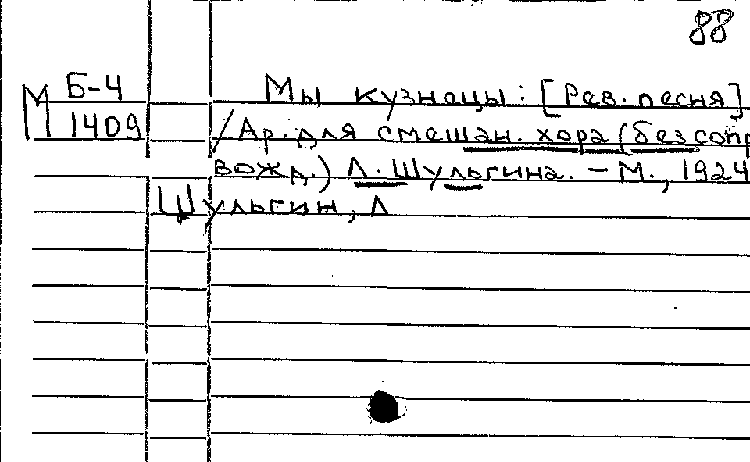 88
М Б-4 Мы кузнецы: [Рев. песня]
1409 / Ар. для смешан. хора (без сопр
вожд.) Л. Шульгина. – М., 1924
Шульгин, Л